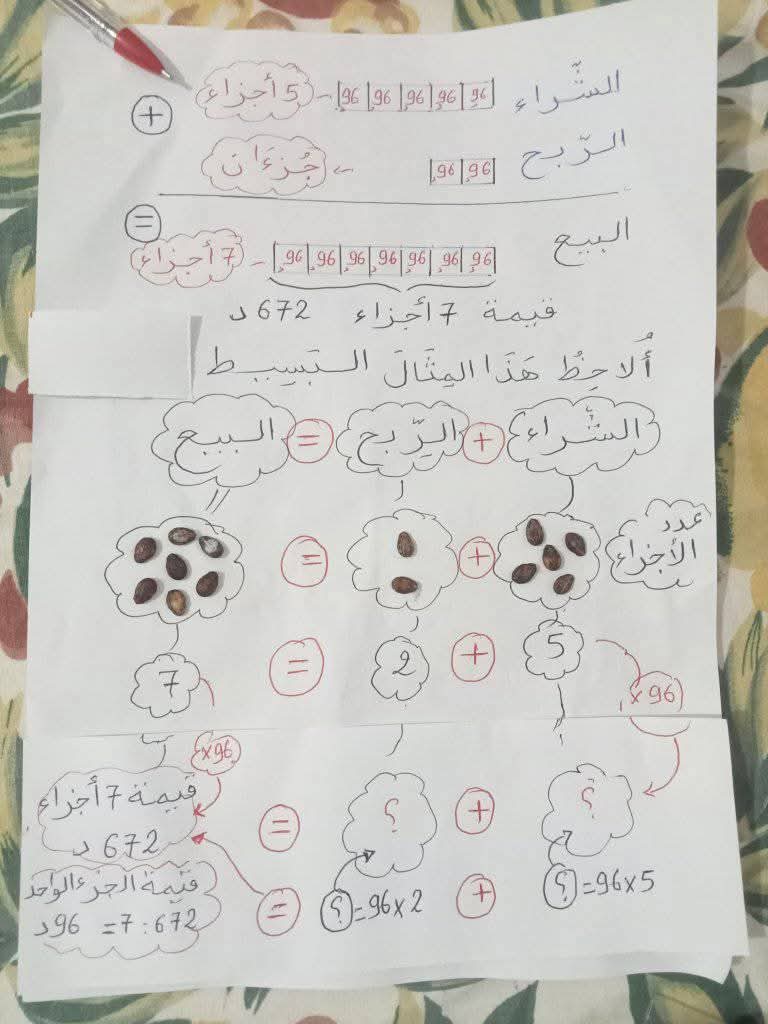 الشّراء 96 96 96 96 96 ← 5 أجزاء
+
الرّبح 96 96 ← جُزءَان
=
البيع 96 96 96 96 96 96 96 ← 7 أجزاء
قيمة 7 أجزاء 672 د
أُلاحِظُ هَذَا المِثَالَ البَسِيط
الشّراء + الرِّبح = البيع
عدد الأجزاء
+ =
5 + 2 = 7
×96 ×96
؟ + ؟ = قيمة 7 أجزاء 672 د
؟ = 96×5 + ؟ = 96×2 = قيمة الجزء الواحد
672 : 7 = 96د